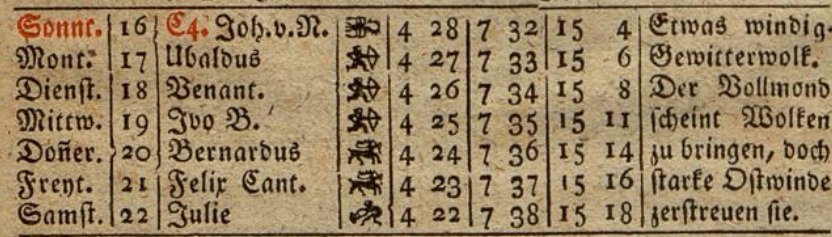 Sonnt. 16 C4. Joh.v.N. 4 28 7 32 15 4 Etwas windig.
Mont. 17 Ubaldus 4 27 7 33 15 6 Gewitterwolk.
Dienſt. 18 Venant. 4 26 7 34 15 8 Der Vollmond
Mittw. 19 Ivo B. 4 25 7 35 15 11 ſcheint Wolken
Doñer. 20 Bernardus 4 24 7 36 15 14 zu bringen, doch
Freyt. 21 Felix Cant. 4 23 7 37 15 16 ſtarke Oſtwinde
Samſt. 22 Julie 4 22 7 38 15 18 zerſtreuen ſie.